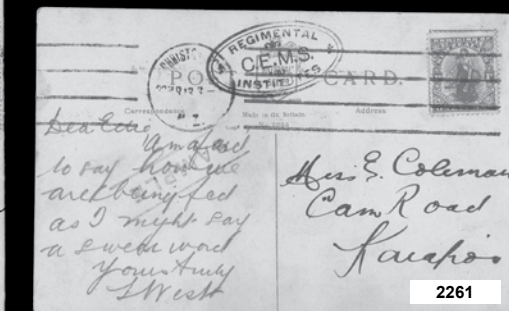 REGIMENTAL
C.E.M.S.
INSTITUTES
POST CARD.
Correspondence
Made in Gt. Britain
Address
Dear
am afraid
to say how we
are being fed
as I might say
a swear word
Yours truly
L West
Miss E. Coleman
Cam Road
Kaiapoi
2261